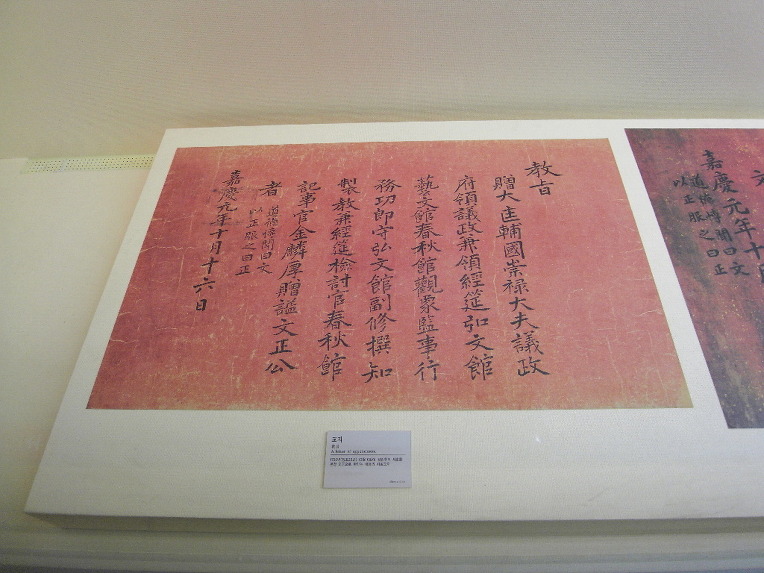 教旨
贈大匡輔國崇禄大夫議政
府領議政兼領經筵弘文館
藝文館春秋館觀象監事行
務功郎守弘文館副修撰知
製教兼經筵檢討官春秋館
記事官金麟厚贈諡文正公
者 道德博聞曰文
以正服之曰正
嘉慶元年十月十六日
嘉慶元年十月
道德博聞曰文
以正服之曰正
교지
教旨
A letter of appointment